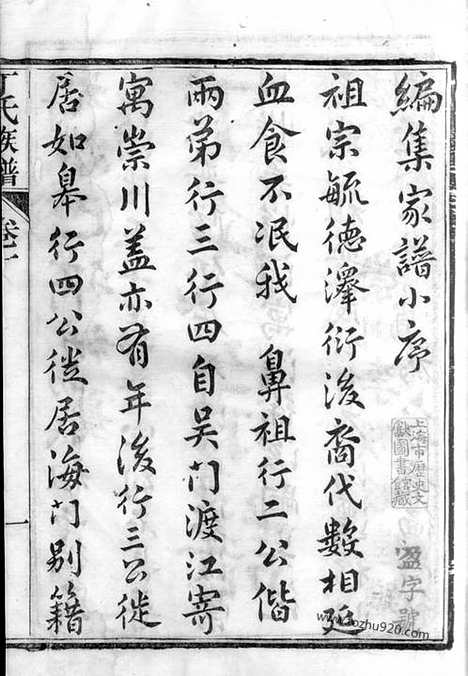 編集家譜小序
盈字號
上海市歷史文
獻圖書館藏
祖宗毓德澤衍後裔代數相延
血食不泯我 鼻祖行二公偕
兩弟行三行四自吴門渡江寄
寓崇川蓋亦有年後行三公徙
居如臯行四公徙居海門别籍
丁氏族譜 卷一 一
www.kozhu920.com